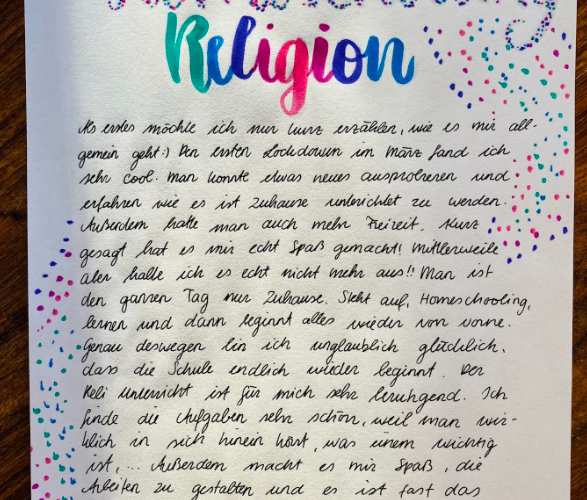 Religion
Als erstes möchte ich nur kurz erzählen, wie es mir all-
gemein geht:) Den ersten Lockdown im März fand ich
sehr cool. Man konnte etwas neues ausprobieren und
erfahren wie es ist zuhause unterrichtet zu werden.
Außerdem hatte man auch mehr Freizeit. Kurz
gesagt hat es mir echt Spaß gemacht! Mittlerweile
aber halte ich es echt nicht mehr aus!! Man ist
den ganzen Tag nur Zuhause. Steht auf, Homeschooling,
lernen und dann beginnt alles wieder von vorne.
Genau deswegen bin ich unglaublich glücklich,
dass die Schule endlich wieder beginnt. Der
Reli Unterricht ist für mich sehr beruhgend. Ich
finde die Aufgaben sehr schön, weil man wir-
klich in sich hinein hört, was einem wichtig
ist,... Außerdem macht es mir Spaß, die
Arbeiten zu gestalten und es ist fast das